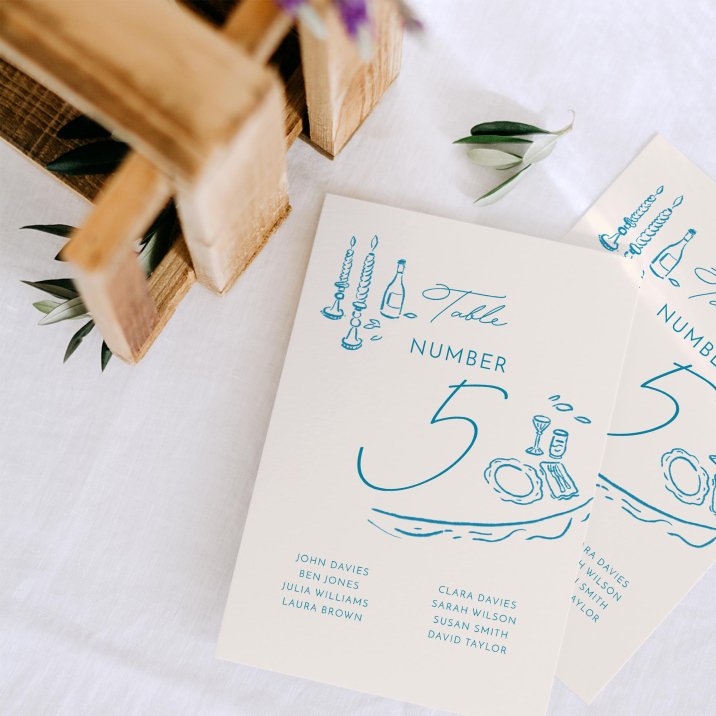 Table
NUMBER
5
JOHN DAVIES
BEN JONES
JULIA WILLIAMS
LAURA BROWN
CLARA DAVIES
SARAH WILSON
SUSAN SMITH
DAVID TAYLOR
NUMBE
5
DAVIES
WILSON
SMITH
TAYLOR